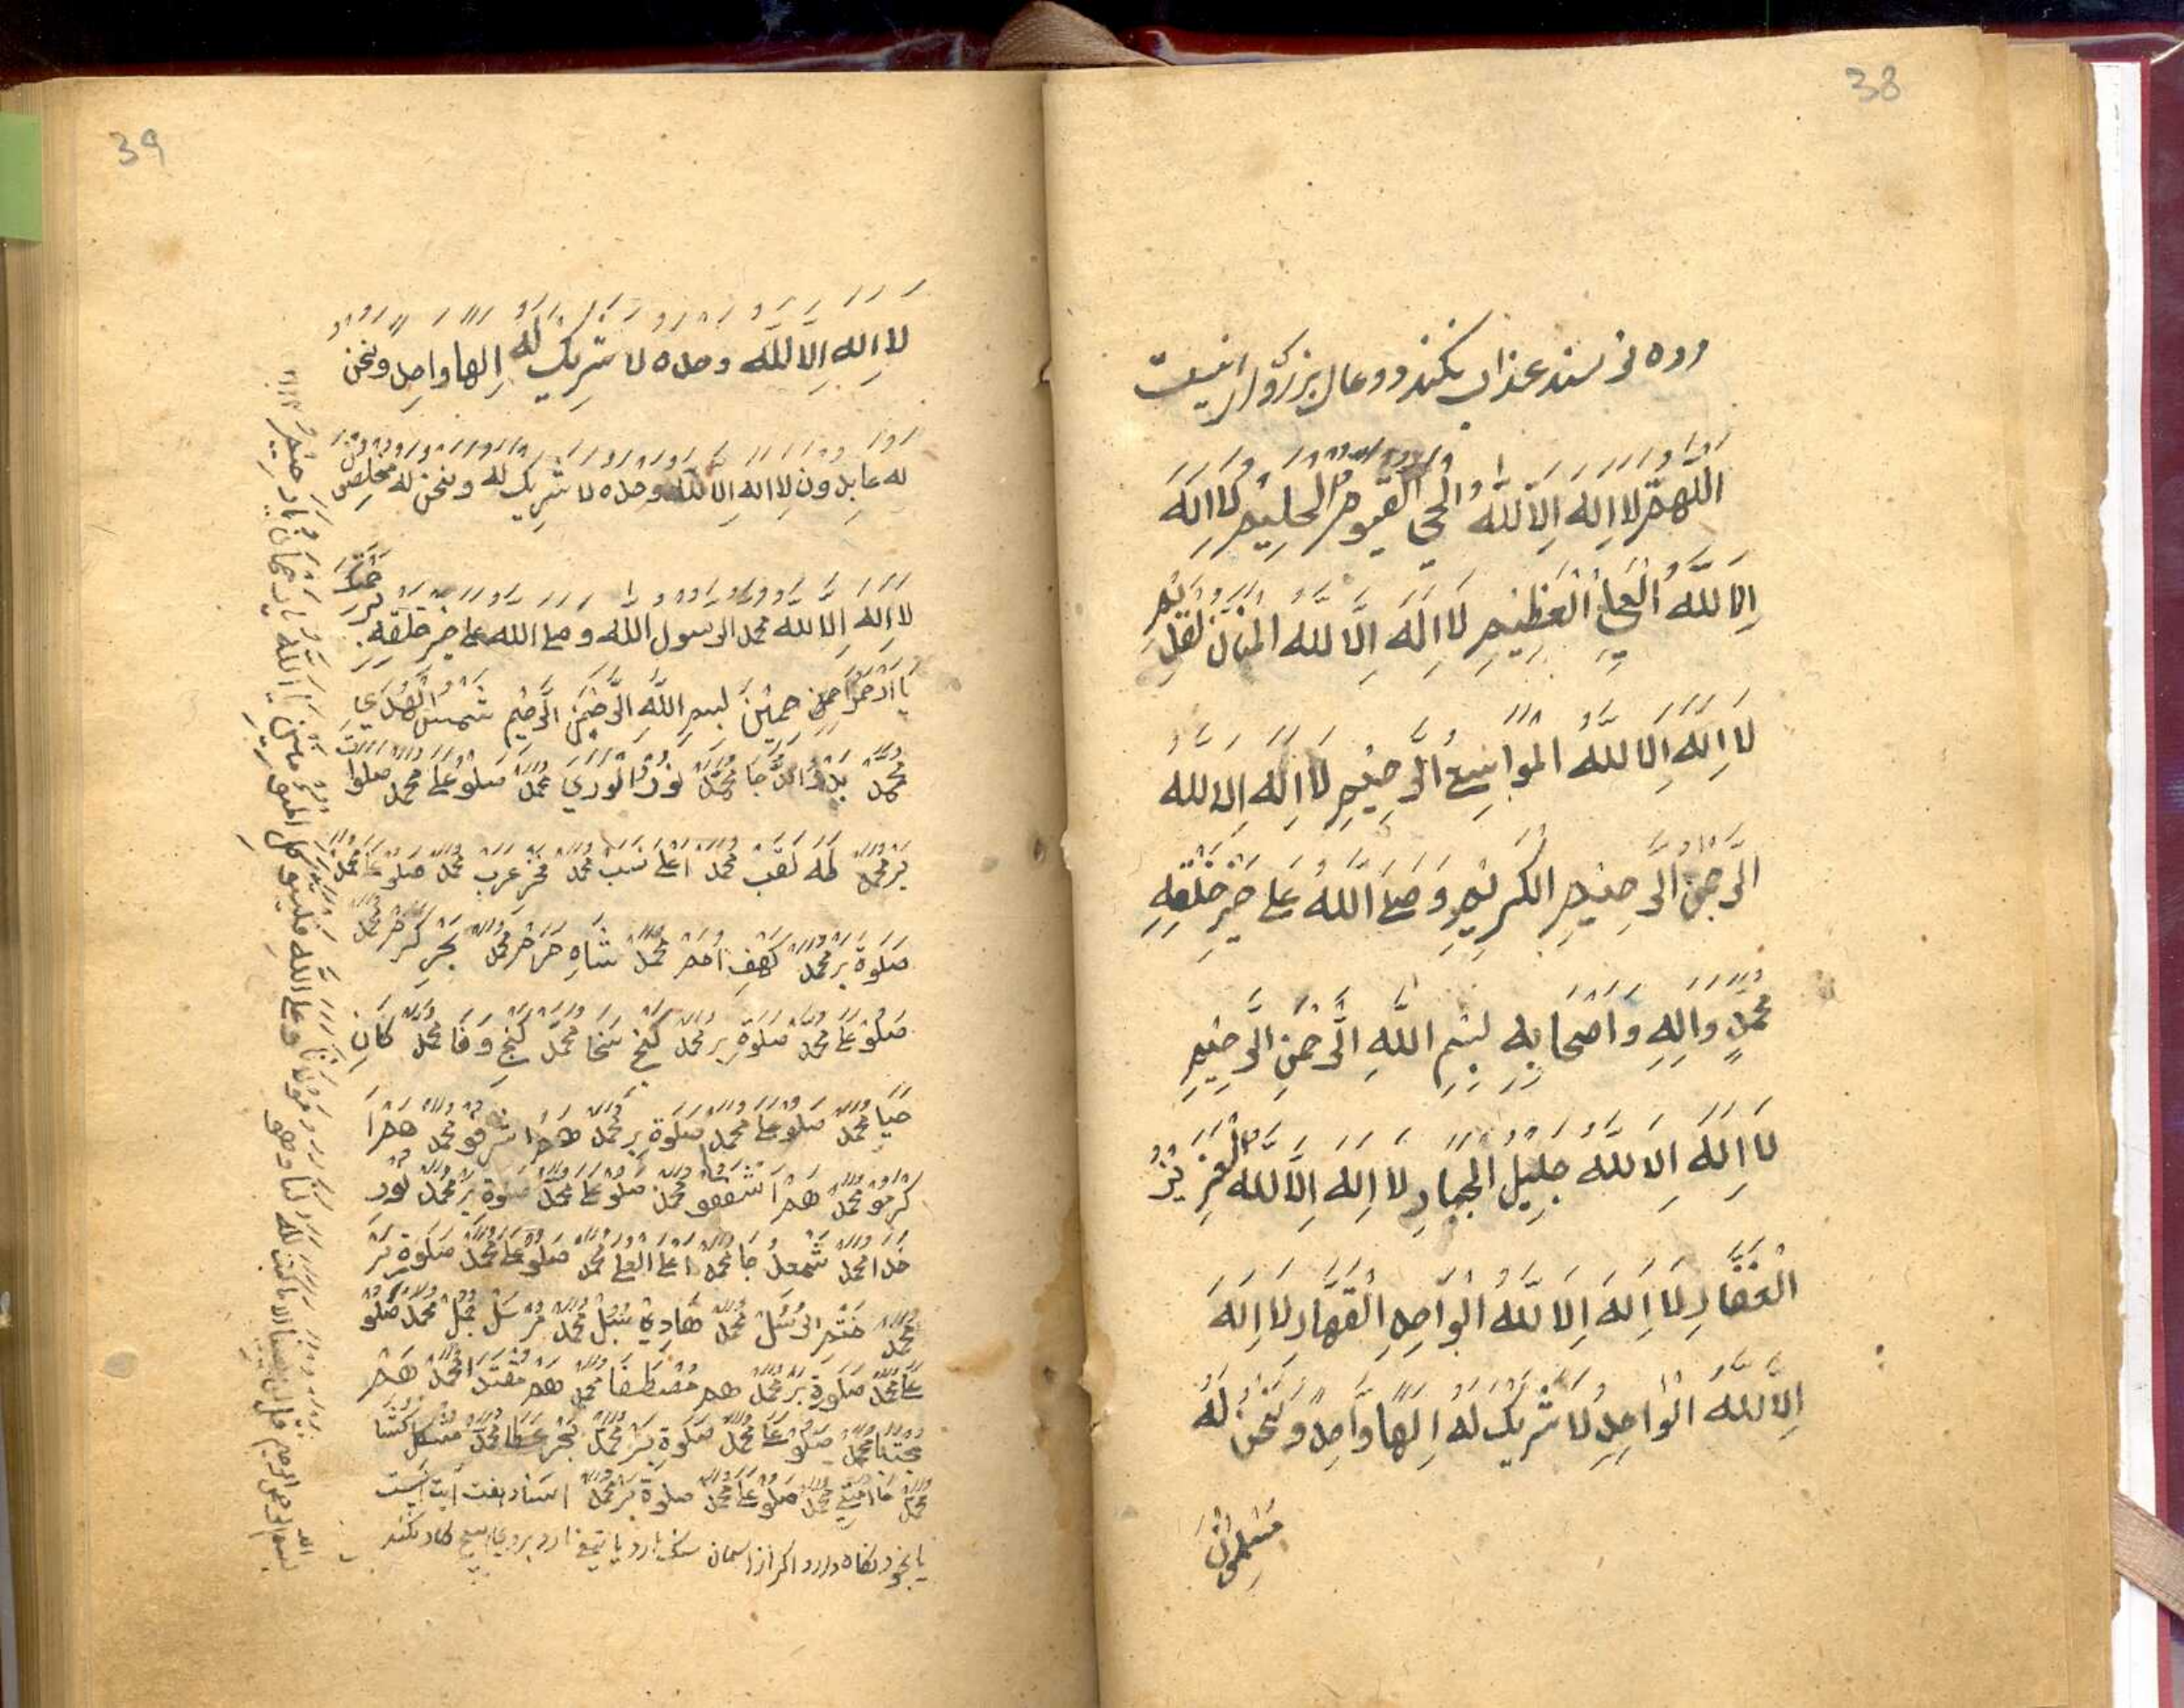 38
عذاب نكند ودعاى بزرگوار اينست
اللهم لا اله الا لله الحي القيوم الحليم لا اله
الا لله العلي العظيم لا اله الا لله المنان القديم
لا اله الا لله الواسع الرحيم لا اله الا لله
الرحمن الرحيم الكريم وصلى الله على خير خلقه
محمد واله واصحابه بسم الله الرحمن الرحيم
لا اله الا لله جليل الجبار لا اله الا لله العزيز
الغفار لا اله الا لله الواحد القهار لا اله
الا لله الواحد لا شريك له الها واحد ونحن له
مسلمون
39
لا اله الا لله وحده لا شريك له الها واحد ونحن
له عابدون لا اله الا لله وحده لا شريك له ونحن له مخلصون
لا اله الا لله محمد الرسول الله وصلى الله على خير خلقه
بسم الله الرحمن الرحيم شمس الهدى
محمد بدر الدجا محمد نور الورى محمد صلو على محمد صلوات
بر محمد طه لقب محمد اعلى نسب محمد فخر عرب محمد صلو على محمد
صلوة بر محمد كهف امم محمد شاه حرم محمد بحر كرم محمد
صلو على محمد صلوة بر محمد گنج سخا محمد گنج وفا محمد كان
حيا محمد صلو على محمد صلوة بر محمد هم اشرفو محمد هم ا
كرمو محمد هم اشفقو محمد صلو على محمد صلوة بر محمد نور
خدا محمد شمعل جا محمد اعلى العلى محمد صلو على محمد صلوة بر
محمد ختم الرسل محمد هادي سبل محمد مرسل محمد صلو
على محمد صلوة بر محمد هم مصطفا محمد هم مقتدا محمد هم
مجتبا محمد صلو على محمد صلوة بر محمد بحر عطا محمد مشكل كشا
محمد صلو على محمد صلوة بر محمد اسناد هفت ايت اينست
با خود نگاه دارد اگر از اسمان سنگ بارد يا تيغ بروى هيچ كار نكند
بسم الله الرحمن الرحيم قل لن يصيبنا الا ما كتب لله لنا وهو مولانا وعلى الله فليتوكل المؤمنين يا الله يا رحمان يا رحيم